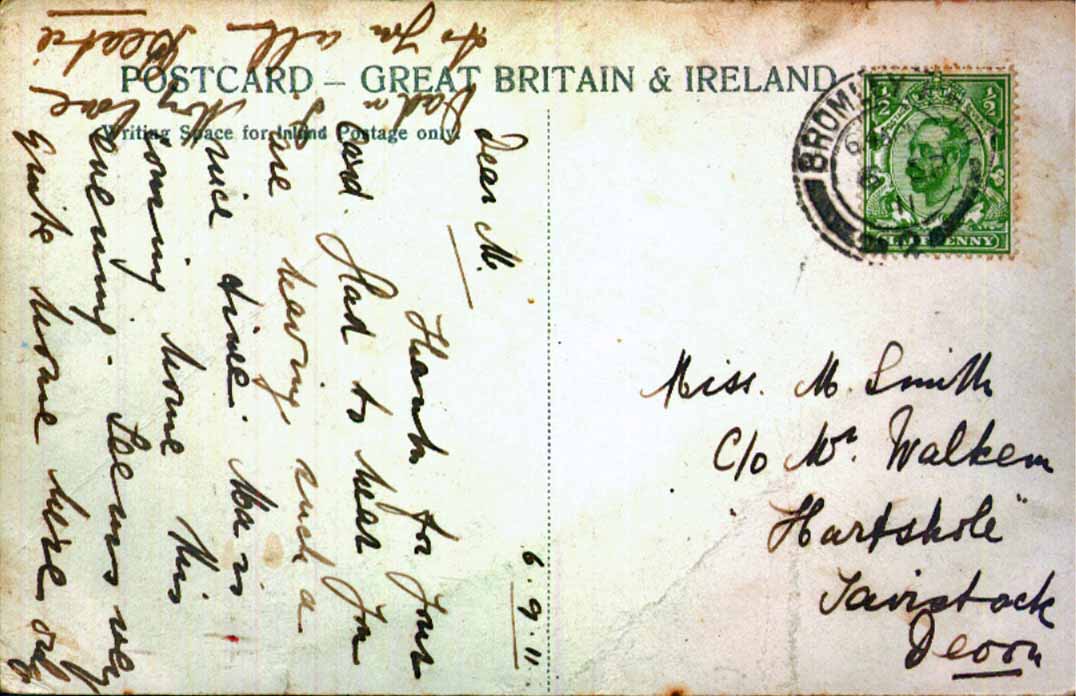 POSTCARD – GREAT BRITAIN & IRELAND
Writing Space for Inland Postage only.
6.9.11.
Dear M.
Thanks for your
card. Glad to hear you
are having such a
nice time. Ma is
coming home this
evening. Seems very
quite home here only
Dad &
I. My love
to you all
Beatie
BROMLEY
HALFPENNY
Miss. M. Smith
C/o Mr. Walkem
"Hartshole"
Tavistock
Devon